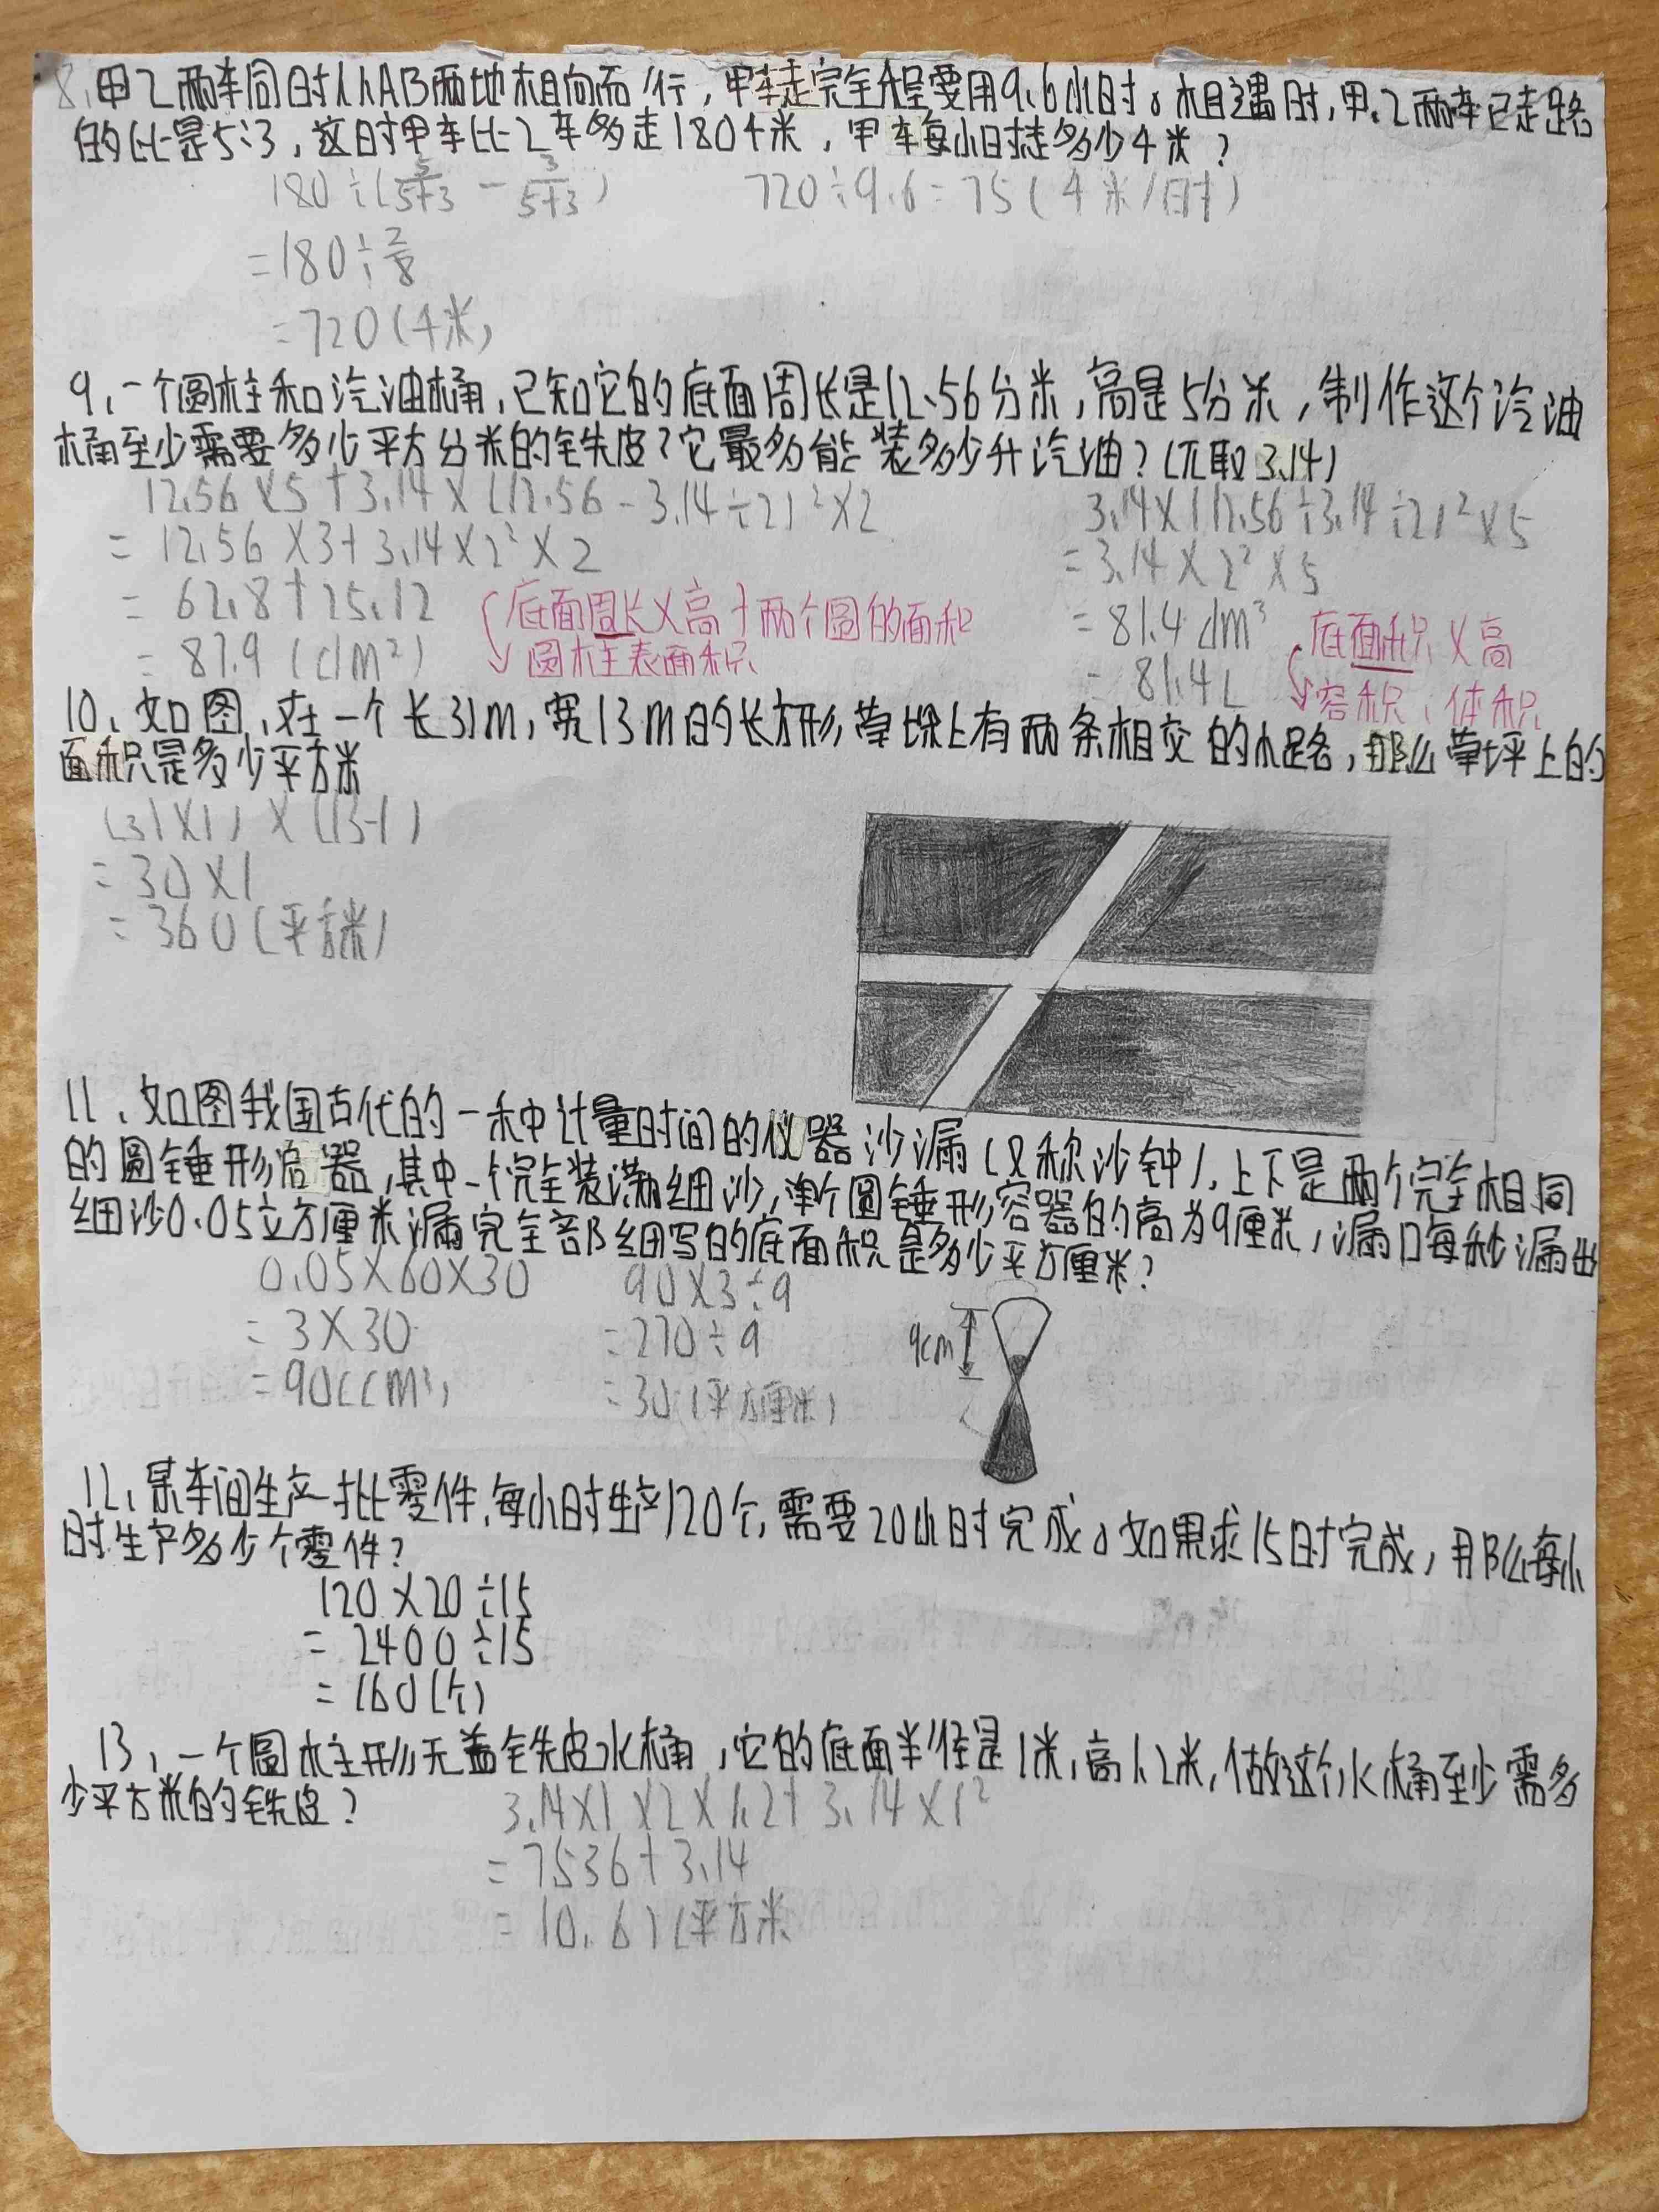 8、甲乙两车同时从AB两地相向而行，甲车走完全程要用9.6小时。相遇时，甲.乙两车已走路
的比是5:3，这时甲车比乙车多走180千米，甲车每小时走多少千米？
180÷(5/5+3 - 3/5+3) 720÷9.6=75(千米/时)
=180÷2/8
=720(千米)
9、一个圆柱和汽油桶，已知它的底面周长是12.56分米，高是5分米，制作这个汽油
桶至少需要多少平方分米的铁皮？它最多能装多少升汽油？(π取3.14)
12.56×5+3.14×(12.56-3.14÷2)²×2
=12.56×3+3.14×2²×2
=62.8+25.12
=87.9(dm²)
底面周长×高+两个圆的面积
圆柱表面积
3.14×(12.56÷3.14÷2)²×5
=3.14×2²×5
=81.4dm³
=81.4L
底面积×高
容积、体积
10、如图，在一个长31m，宽13m的长方形，草坪上有两条相交的小路，那么草坪上的
面积是多少平方米
(31×1)×(13-1)
=30×1
=360(平方米)
11、如图我国古代的一种计量时间的仪器沙漏(又称沙钟)，上下是两个完全相同
的圆锤形容器，其中一个完全装满细沙，单个圆锤形容器的高为9厘米，漏口每秒漏出
细沙0.05立方厘米漏完全部细写的底面积是多少平方厘米？
0.05×60×30
=3×30
=90(cm³)
90×3÷9
=270÷9
=30(平方厘米)
9cm
12、某车间生产一批零件，每小时生产120个，需要20小时完成。如果求15时完成，那么每小
时生产多少个零件？
120×20÷15
=2400÷15
=160(个)
13、一个圆柱形无盖铁皮水桶，它的底面半径是1米，高1.2米，做这个水桶至少需多
少平方米的铁皮？
3.14×1×2×1.2+3.14×1²
=7.536+3.14
=10.61(平方米